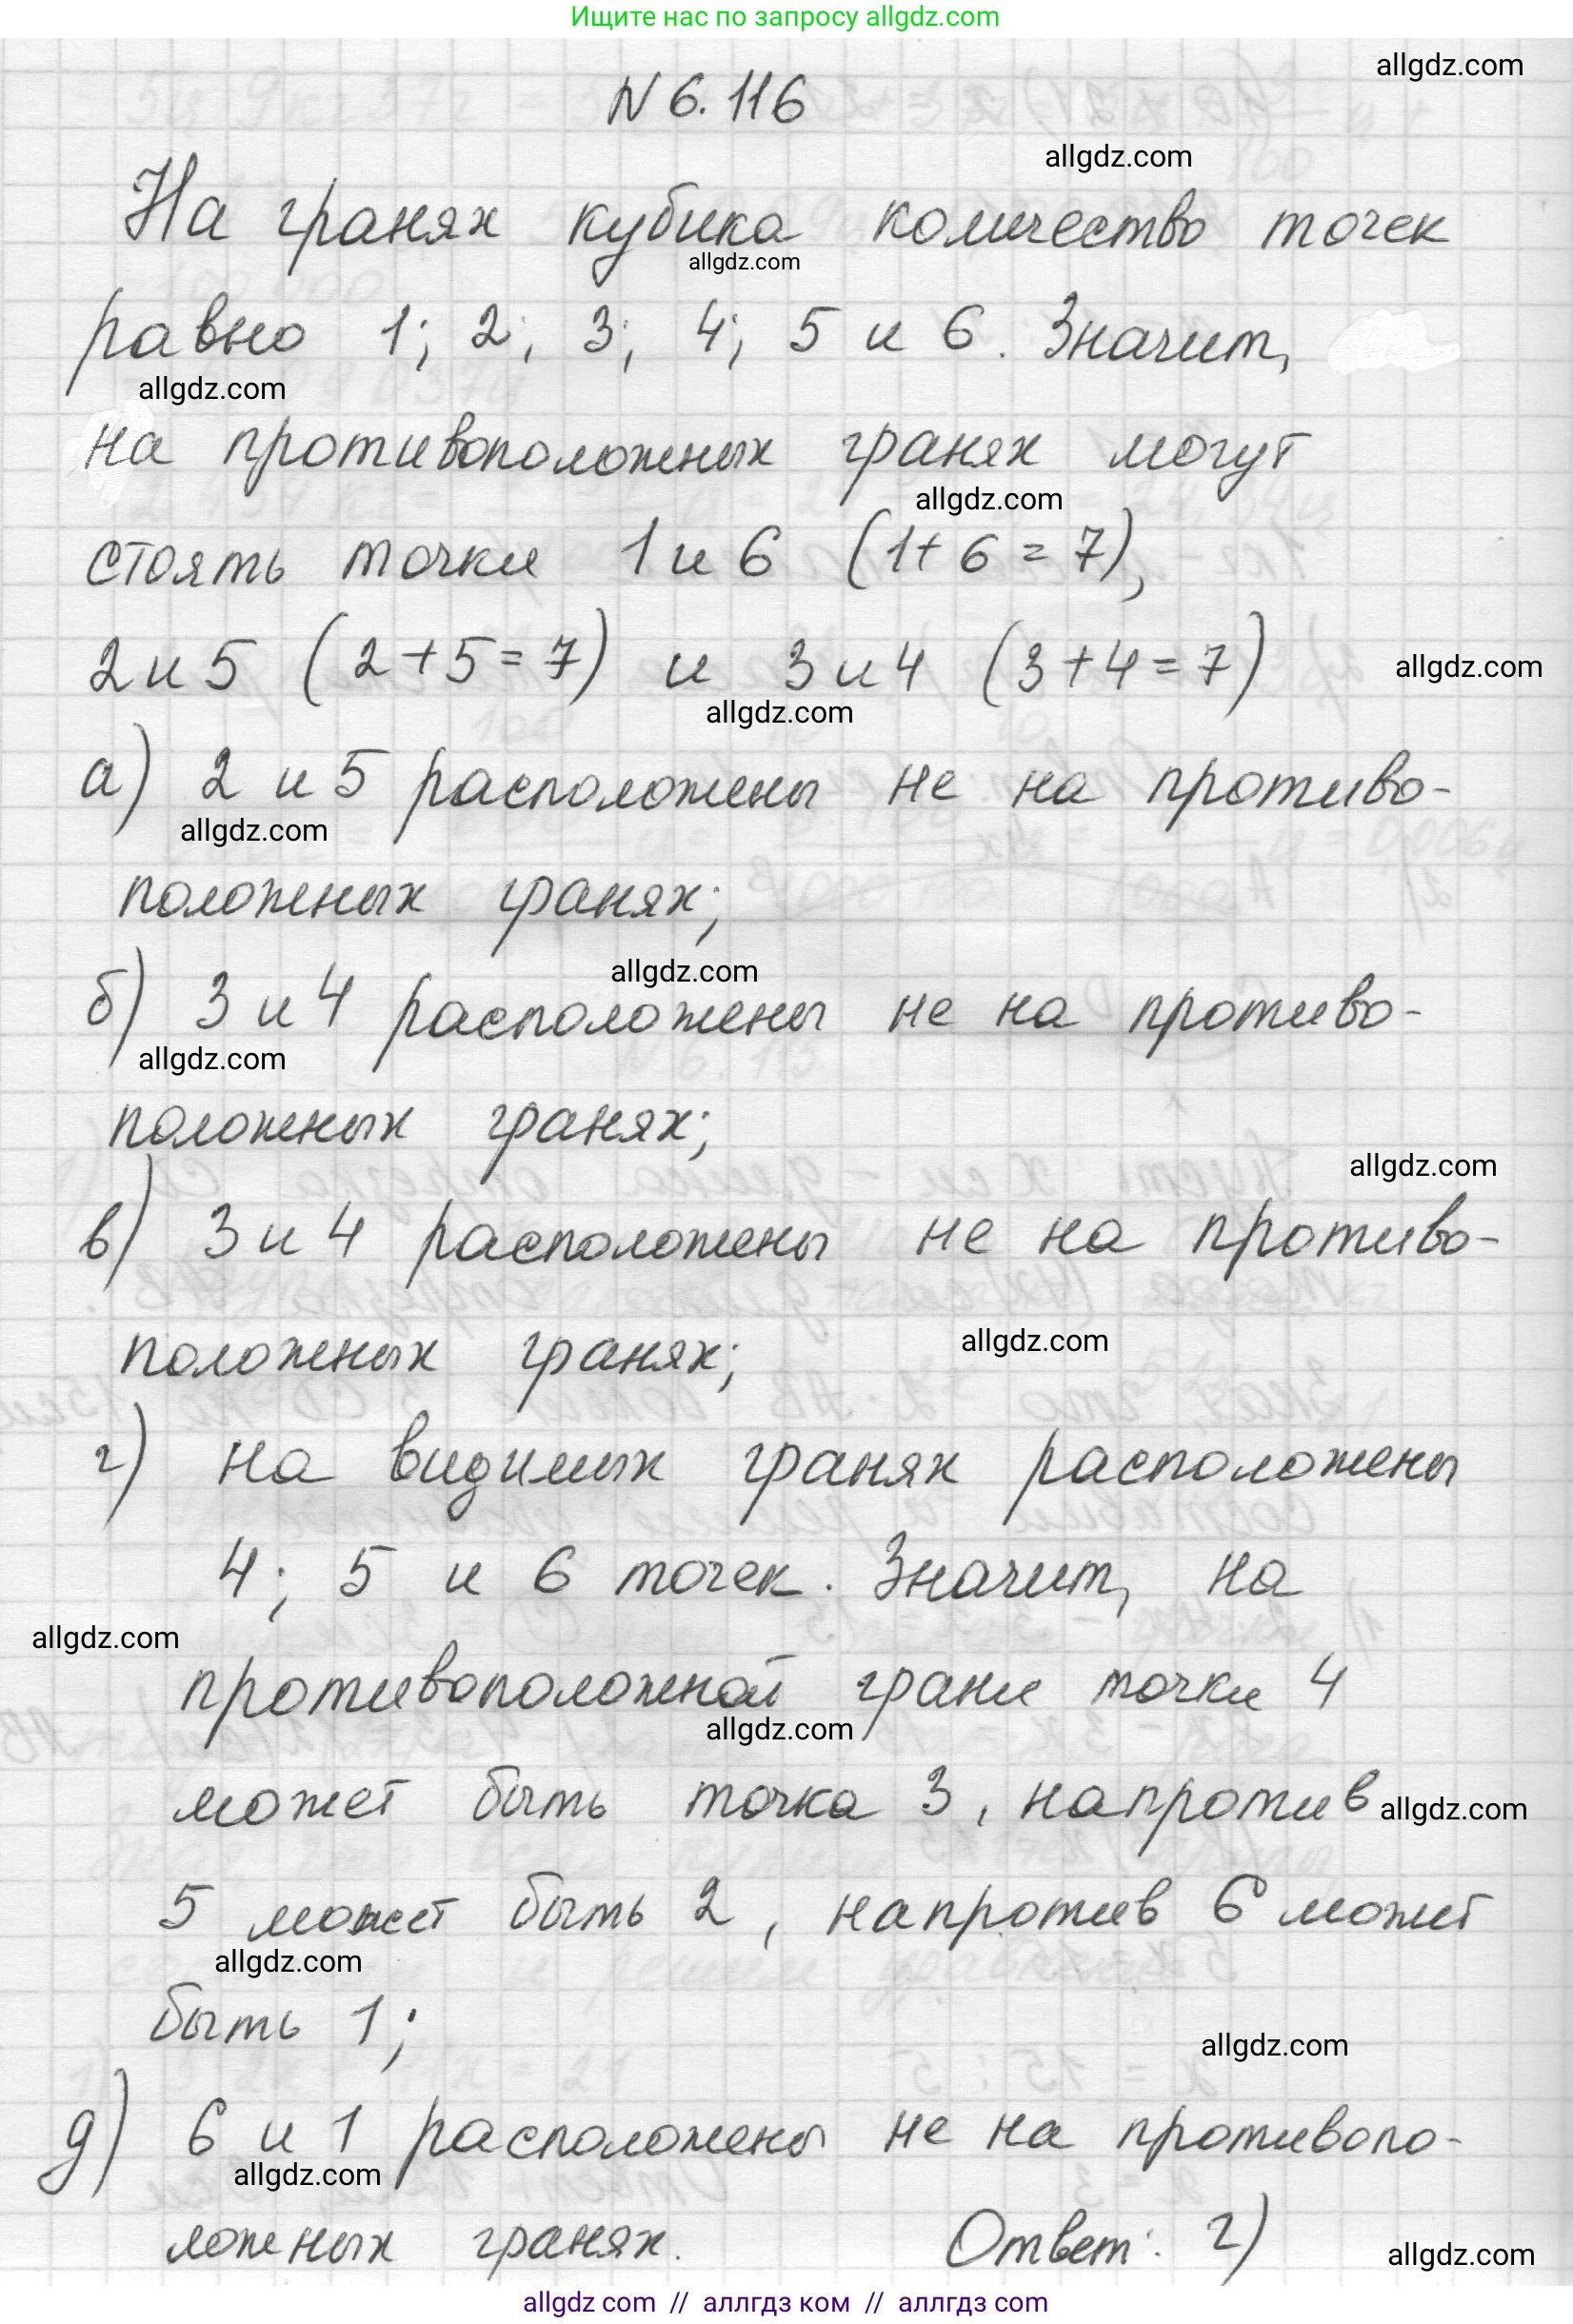 Ищите нас по запросу allgdz.com
allgdz.com
N 6.116
allgdz.com
На гранях кубика количество точек
allgdz.com
равно 1; 2; 3; 4; 5 и 6. Значит,
allgdz.com
на противоположных гранях могут
allgdz.com
стоять точки 1 и 6 (1+6=7),
2 и 5 (2+5=7) и 3 и 4 (3+4=7)
allgdz.com
allgdz.com
а) 2 и 5 расположены не на противо-
allgdz.com
положных гранях;
allgdz.com
б) 3 и 4 расположены не на противо-
allgdz.com
положных гранях;
allgdz.com
в) 3 и 4 расположены не на противо-
allgdz.com
положных гранях;
г) на видимых гранях расположены
4; 5 и 6 точек. Значит, на
allgdz.com
противоположной грани точки 4
allgdz.com
может быть точка 3, напротив
allgdz.com
5 может быть 2, напротив 6 может
allgdz.com
быть 1;
allgdz.com
д) 6 и 1 расположены не на противопо-
allgdz.com
ложных гранях. Ответ: г)
allgdz.com
allgdz com // аллгдз ком // аллгдз com